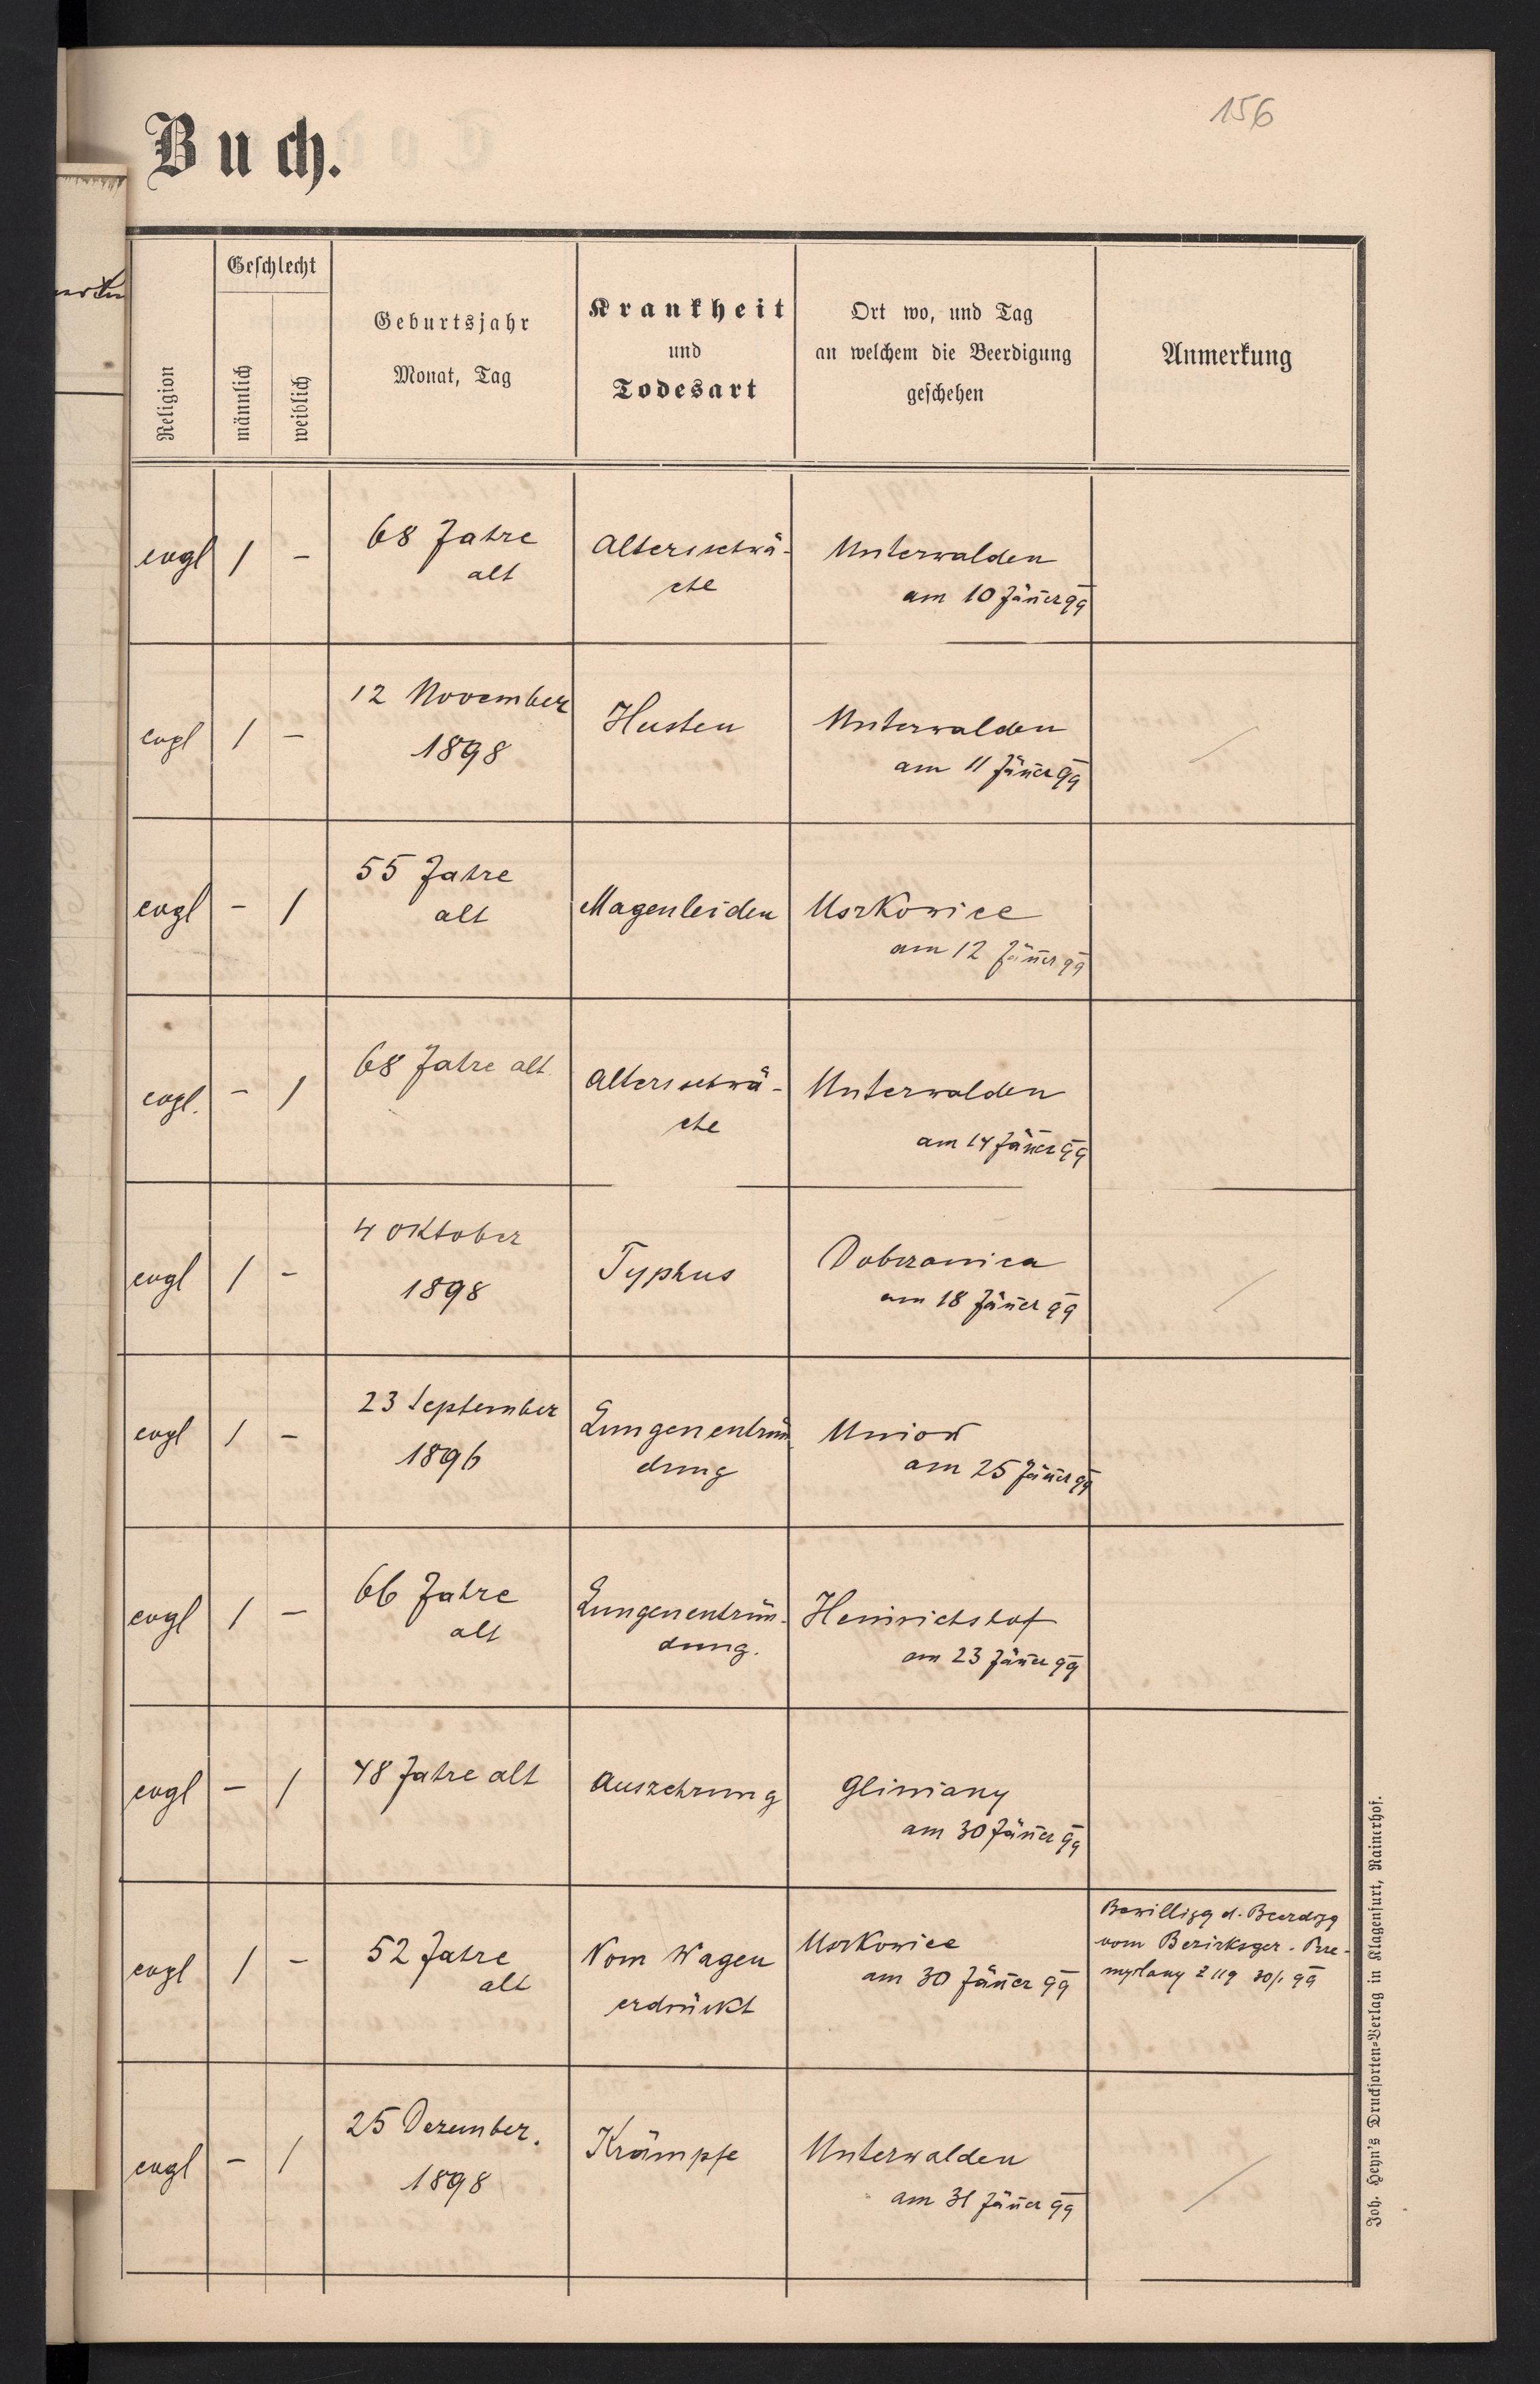 156
Buch.
Religion
Geschlecht
männlich
weiblich
Geburtsjahr
Monat, Tag
Krankheit
und
Todesart
Ort wo, und Tag
an welchem die Beerdigung
geschehen
Anmerkung
evgl / – 68 Jahre Altersschwä- Unterwalden
alt che am 10 Jäner 99
evgl / – 12 November Husten Unterwalden
1898 am 11 Jäner 99
evgl – / 55 Jahre Magenleiden Uszkowice
alt am 12 Jäner 99
evgl. – / 68 Jahre alt Altersschwä- Unterwalden
che am 14 Jäner 99
evgl / – 4 Oktober Typhus Dobrzanica
1898 am 18 Jäner 99
evgl / – 23 September Lungenentzün- Uniow
1896 dung am 25 Jäner 99
evgl / – 66 Jahre Lungenentzün- Heinrichshof
alt dung. am 23 Jäner 99
evgl – / 48 Jahre alt Auszehrung Gliniany
am 30 Jäner 99
evgl / – 52 Jahre Vom Wagen Uszkowice Bewilligg d. Beerdigg
alt erdrückt am 30 Jäner 99 vom Bezirksger. Prze-
myslany Z 119 30/1 99
evgl – / 25 Dezember. Krämpfe Unterwalden
1898 am 31 Jäner 99
Joh. Heyn's Drucksorten-Verlag in Klagenfurt, Rainerhof.